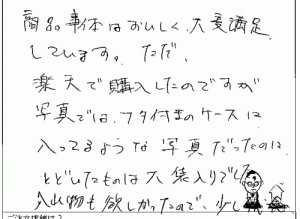 商品事体はおいしく、大変満足
しています。ただ、
楽天で購入したのですが
写真では、フタ付きのケースに
入ってるような写真だったのに
とどいたものは大袋入りでした
入れ物も欲しかったので、少し